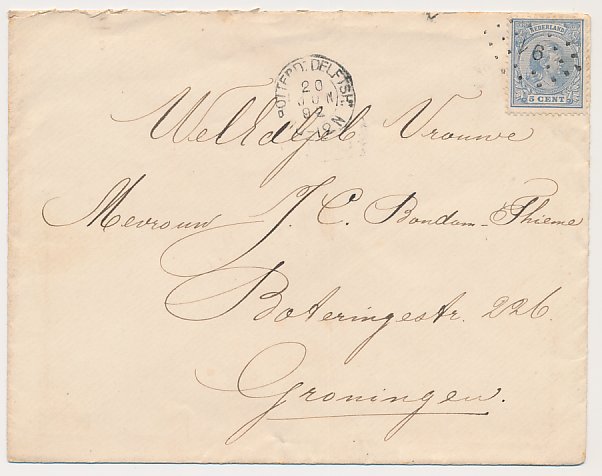 NEDERLAND
6
5 CENT
ROTTERD: DELFTSP:
20
JUN
92
-12 N
WelEdele Vrouwe
Mevrouw J. C. Bondam-Thieme
Boteringestr. 226.
Groningen.